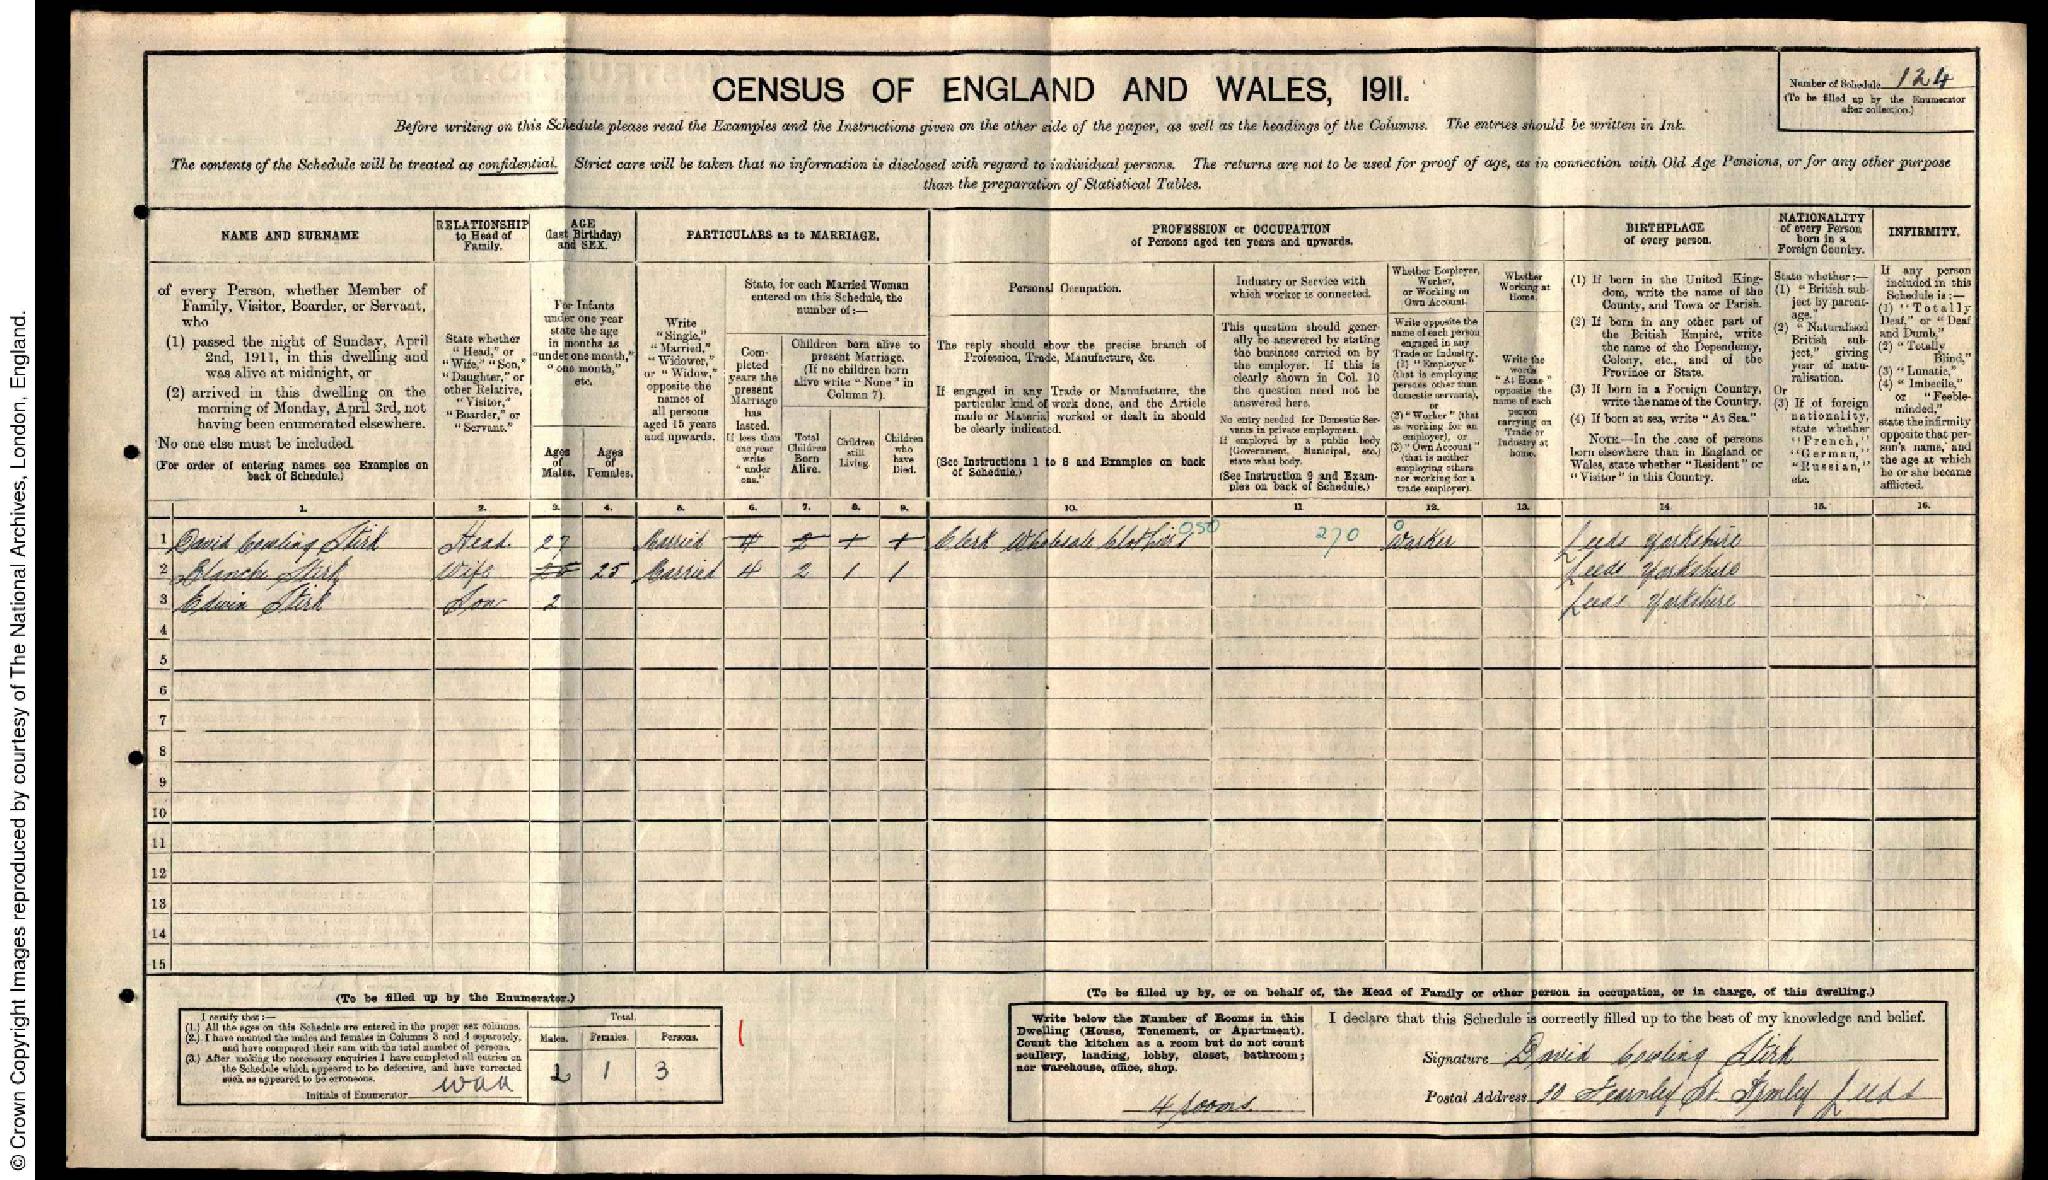 CENSUS OF ENGLAND AND WALES, 1911.
Number of Schedule 124
(To be filled up by the Enumerator
after collection.)
Before writing on this Schedule please read the Examples and the Instructions given on the other side of the paper, as well as the headings of the Columns. The entries should be written in Ink.
The contents of the Schedule will be treated as confidential. Strict care will be taken that no information is disclosed with regard to individual persons. The returns are not to be used for proof of age, as in connection with Old Age Pensions, or for any other purpose
than the preparation of Statistical Tables.
NAME AND SURNAME
of every Person, whether Member of
Family, Visitor, Boarder, or Servant,
who
(1) passed the night of Sunday, April
2nd, 1911, in this dwelling and
was alive at midnight, or
(2) arrived in this dwelling on the
morning of Monday, April 3rd, not
having been enumerated elsewhere.
No one else must be included.
(For order of entering names see Examples on
back of Schedule.)
RELATIONSHIP
to Head of
Family.
State whether
"Head," or
"Wife," "Son,"
"Daughter," or
other Relative,
"Visitor,"
"Boarder," or
"Servant."
AGE
(last Birthday)
and SEX.
For Infants
under one year
state the age
in months as
"under one month,"
"one month,"
etc.
Ages
of
Males.
Ages
of
Females.
PARTICULARS as to MARRIAGE.
Write
"Single,"
"Married,"
"Widower,"
or "Widow,"
opposite the
names of
all persons
aged 15 years
and upwards.
State, for each Married Woman
entered on this Schedule, the
number of:—
Com-
pleted
years the
present
Marriage
has
lasted.
If less than
one year
write
"under
one."
Children born alive to
present Marriage.
(If no children born
alive write "None" in
Column 7).
Total
Children
Born
Alive.
Children
still
Living.
Children
who
have
Died.
PROFESSION or OCCUPATION
of Persons aged ten years and upwards.
Personal Occupation.
The reply should show the precise branch of
Profession, Trade, Manufacture, &c.
If engaged in any Trade or Manufacture, the
particular kind of work done, and the Article
made or Material worked or dealt in should
be clearly indicated.
(See Instructions 1 to 8 and Examples on back
of Schedule.)
Industry or Service with
which worker is connected.
This question should gener-
ally be answered by stating
the business carried on by
the employer. If this is
clearly shown in Col. 10
the question need not be
answered here.
No entry needed for Domestic Ser-
vants in private employment.
If employed by a public body
(Government, Municipal, etc.)
state what body.
(See Instruction 9 and Exam-
ples on back of Schedule.)
Whether Employer,
Worker,
or Working on
Own Account.
Write opposite the
name of each person
engaged in any
Trade or Industry,
(1) "Employer"
(that is employing
persons other than
domestic servants),
or
(2) "Worker" (that
is working for an
employer), or
(3) "Own Account"
(that is neither
employing others
nor working for a
trade employer).
Whether
Working at
Home.
Write the
words
"At Home"
opposite the
name of each
person
carrying on
Trade or
Industry at
home.
BIRTHPLACE
of every person.
(1) If born in the United King-
dom, write the name of the
County, and Town or Parish.
(2) If born in any other part of
the British Empire, write
the name of the Dependency,
Colony, etc., and of the
Province or State.
(3) If born in a Foreign Country,
write the name of the Country.
(4) If born at sea, write "At Sea."
NOTE.—In the case of persons
born elsewhere than in England or
Wales, state whether "Resident" or
"Visitor" in this Country.
NATIONALITY
of every Person
born in a
Foreign Country.
State whether:—
(1) "British sub-
ject by parent-
age."
(2) "Naturalised
British sub-
ject," giving
year of natu-
ralisation.
Or
(3) If of foreign
nationality,
state whether
"French,"
"German,"
"Russian,"
etc.
INFIRMITY.
If any person
included in this
Schedule is:—
(1) "Totally
Deaf," or "Deaf
and Dumb,"
(2) "Totally
Blind,"
(3) "Lunatic,"
(4) "Imbecile,"
or "Feeble-
minded,"
state the infirmity
opposite that per-
son's name, and
the age at which
he or she became
afflicted.
1. 2. 3. 4. 5. 6. 7. 8. 9. 10. 11 12. 13. 14. 15. 16.
1 David Cowling Stirk Head. 27 Married 4 2 1 1 Clerk Wholesale Clothiers 050 270 0 Worker Leeds Yorkshire
2 Blanche Stirk Wife 25 Married 4 2 1 1 Leeds Yorkshire
3 Edwin Stirk Son 2 Leeds Yorkshire
4
5
6
7
8
9
10
11
12
13
14
15
(To be filled up by the Enumerator.)
I certify that:—
(1.) All the ages on this Schedule are entered in the proper sex columns.
(2.) I have counted the males and females in Columns 3 and 4 separately,
and have compared their sum with the total number of persons.
(3.) After making the necessary enquiries I have completed all entries on
the Schedule which appeared to be defective, and have corrected
such as appeared to be erroneous.
Initials of Enumerator
Total.
Males. Females. Persons.
2 1 3
(To be filled up by, or on behalf of, the Head of Family or other person in occupation, or in charge, of this dwelling.)
Write below the Number of Rooms in this
Dwelling (House, Tenement, or Apartment).
Count the kitchen as a room but do not count
scullery, landing, lobby, closet, bathroom;
nor warehouse, office, shop.
4 rooms
I declare that this Schedule is correctly filled up to the best of my knowledge and belief.
Signature David Cowling Stirk
Postal Address Fearnley St. Armley Leeds
© Crown Copyright Images reproduced by courtesy of The National Archives, London, England.